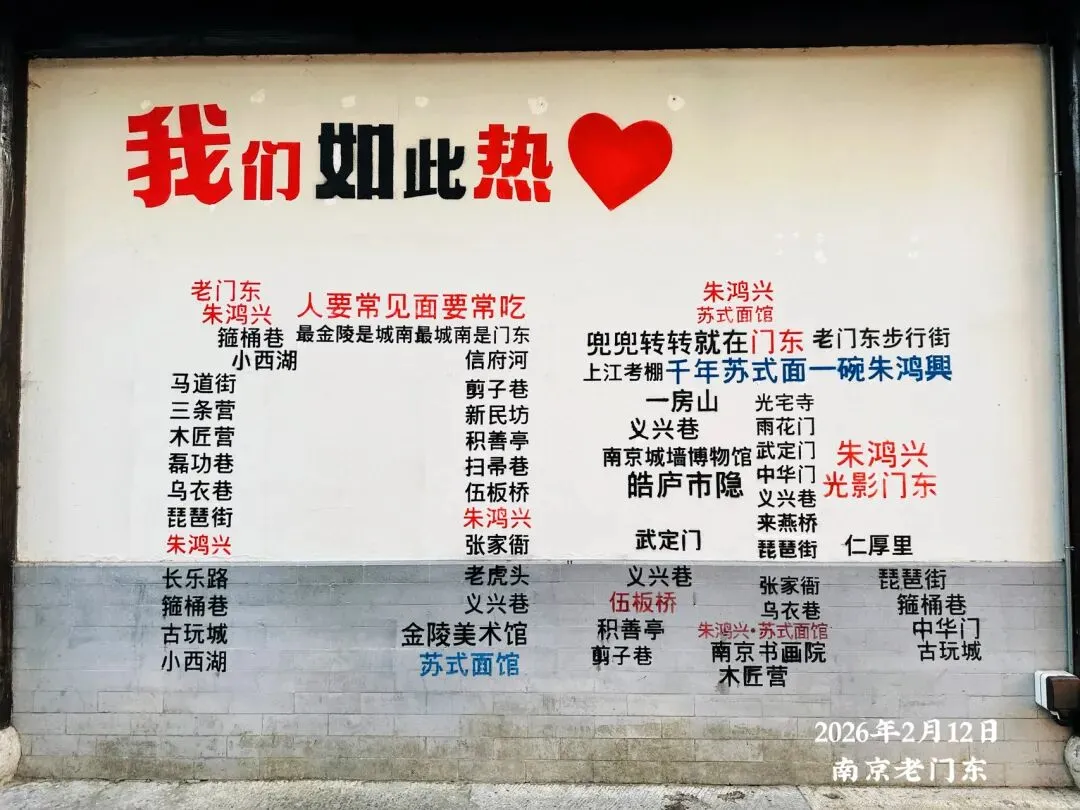 我们如此热
老门东
朱鸿兴
人要常见面要常吃
箍桶巷
最金陵是城南最城南是门东
小西湖
信府河
马道街
剪子巷
三条营
新民坊
木匠营
积善亭
磊功巷
扫帚巷
乌衣巷
伍板桥
琵琶街
朱鸿兴
朱鸿兴
张家衙
长乐路
老虎头
箍桶巷
义兴巷
古玩城
金陵美术馆
小西湖
苏式面馆
朱鸿兴
苏式面馆
兜兜转转就在门东
老门东步行街
上江考棚
千年苏式面一碗朱鸿興
一房山
光宅寺
义兴巷
雨花门
南京城墙博物馆
武定门
朱鸿兴
皓庐市隐
中华门
光影门东
义兴巷
来燕桥
武定门
琵琶街
仁厚里
义兴巷
张家衙
琵琶街
伍板桥
乌衣巷
箍桶巷
积善亭
朱鸿兴·苏式面馆
中华门
剪子巷
南京书画院
古玩城
木匠营
2026年2月12日
南京老门东